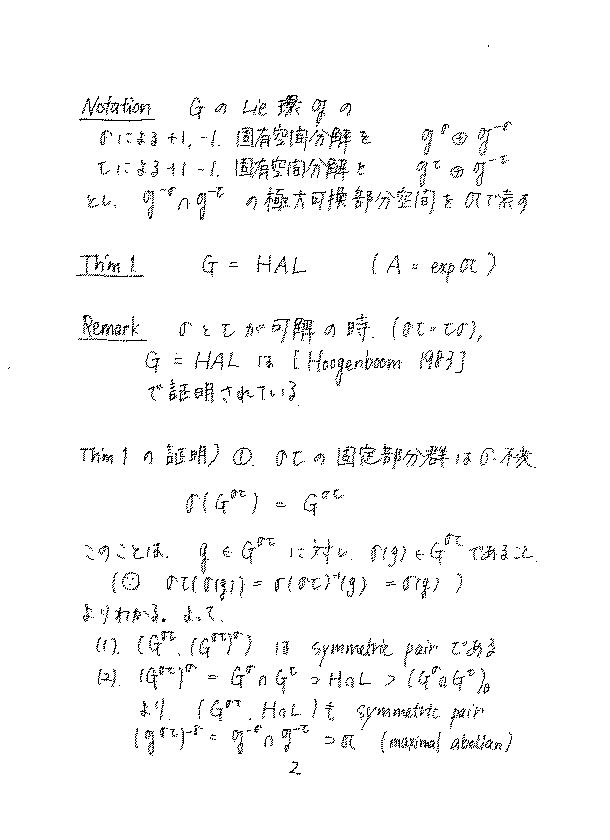 Notation G の Lie 環 𝔤 の
σ による +1, -1. 固有空間分解を 𝔤^σ ⊕ 𝔤^{-σ}
τ による +1 -1. 固有空間分解を 𝔤^τ ⊕ 𝔤^{-τ}
とし、 𝔤^{-σ} ∩ 𝔤^{-τ} の極大可換部分空間を 𝔞 で表す
Thm 1 G = HAL (A = exp 𝔞)
Remark σ と τ が可解の時. (στ = τσ),
G = HAL は [Hoogenboom 1983]
で証明されている
Thm 1 の証明) ①. στ の固定部分群は σ-不変.
σ(G^{στ}) = G^{στ}
このことは. g ∈ G^{στ} に対し. σ(g) ∈ G^{στ} であること.
(∵ στ(σ(g)) = σ(στ)^{-1}(g) = σ(g) )
よりわかる。よって、
(1). (G^{στ}, (G^{στ})^σ) は symmetric pair である
(2). (G^{στ})^σ = G^σ ∩ G^τ ⊃ H∩L ⊃ (G^σ ∩ G^τ)_0
より. (G^{στ}, H∩L) も symmetric pair
(𝔤^{στ})^{-σ} = 𝔤^{-σ} ∩ 𝔤^{-τ} ⊃ 𝔞 (maximal abelian)
2